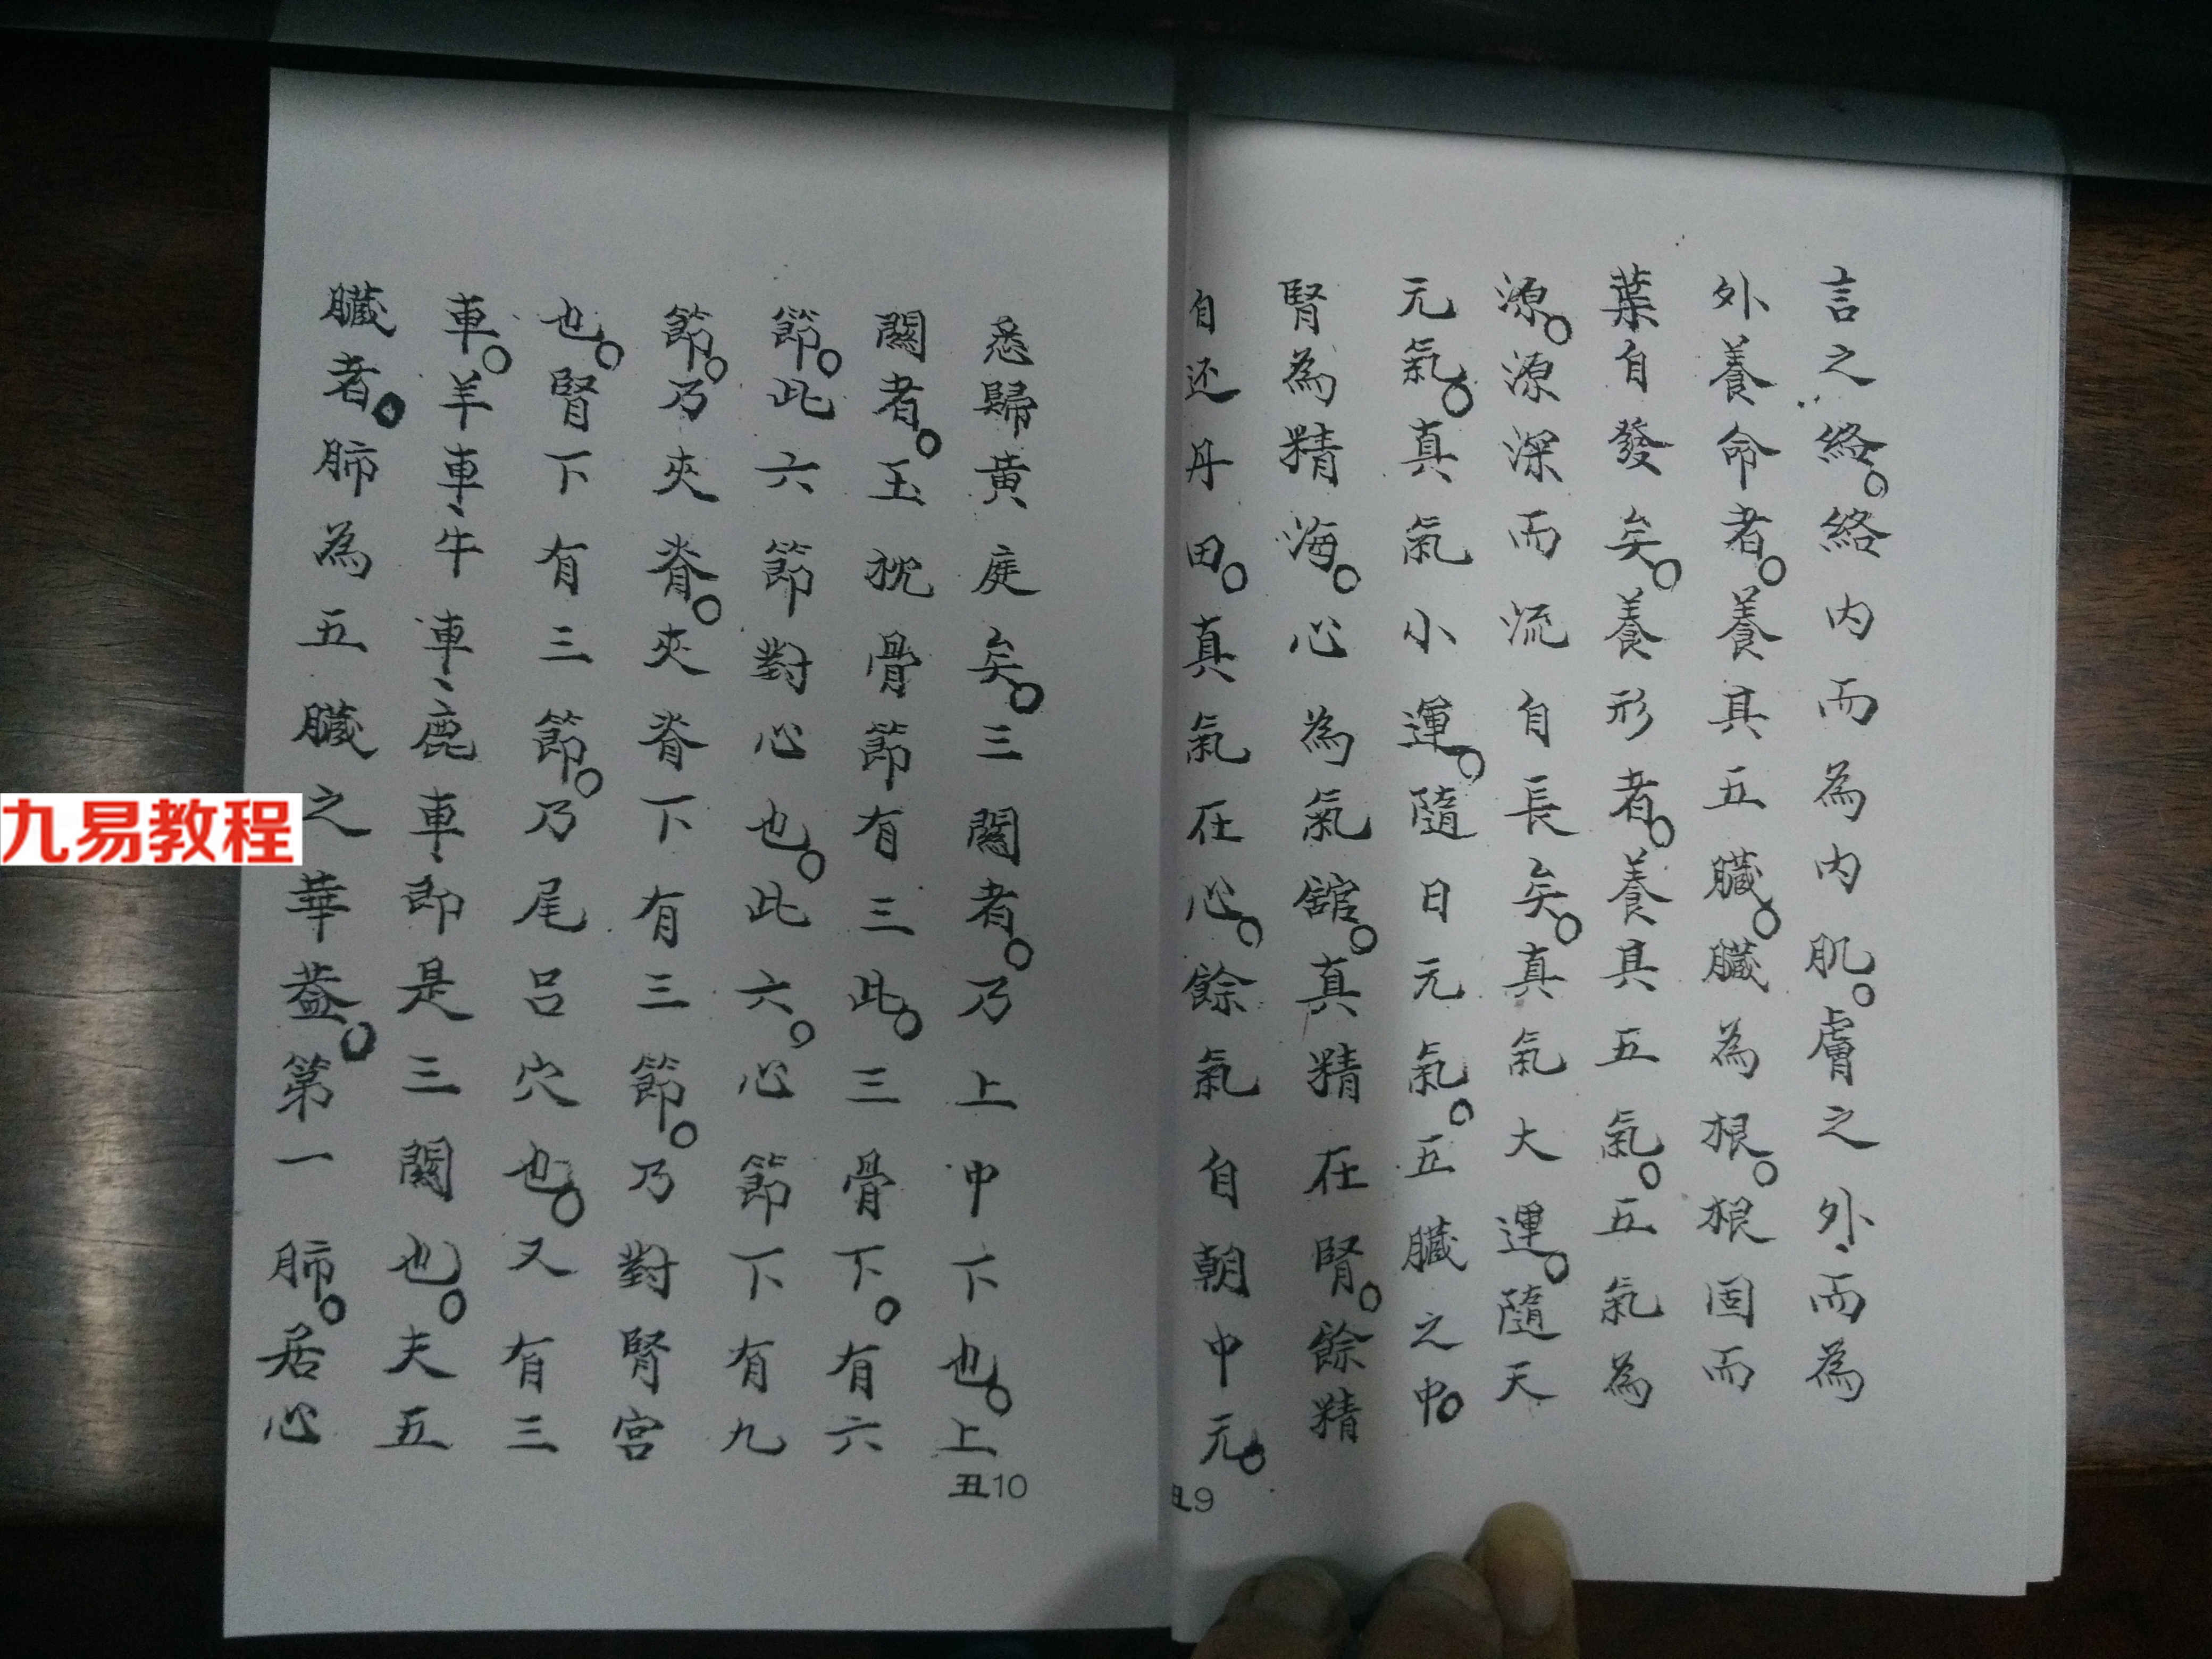 言之絡。絡內而為內肌。膚之外、而為
外養命者。養其五臟。臟為根。根固而
葉自發矣。養形者。養具五氣。五氣為
源。源深而流自長矣。真氣大運。隨天
元氣。真氣小運。隨日元氣。五臟之中。
腎為精海。心為氣舘。真精在腎。餘精
自还丹田。真氣在心。餘氣自朝中元。
丑9
悉歸黃庭矣。三關者。乃上中下也。上
關者。玉枕骨節有三此。三骨下。有六
節。此六節對心也。此六。心節下有九
節。乃夾脊。夾脊下有三節。乃對腎宮
也。腎下有三節。乃尾呂穴也。又有三
車。羊車、牛車、鹿車、即是三關也。夫五
臟者。肺為五臟之華蓋。第一肺。居心
丑10
九易教程